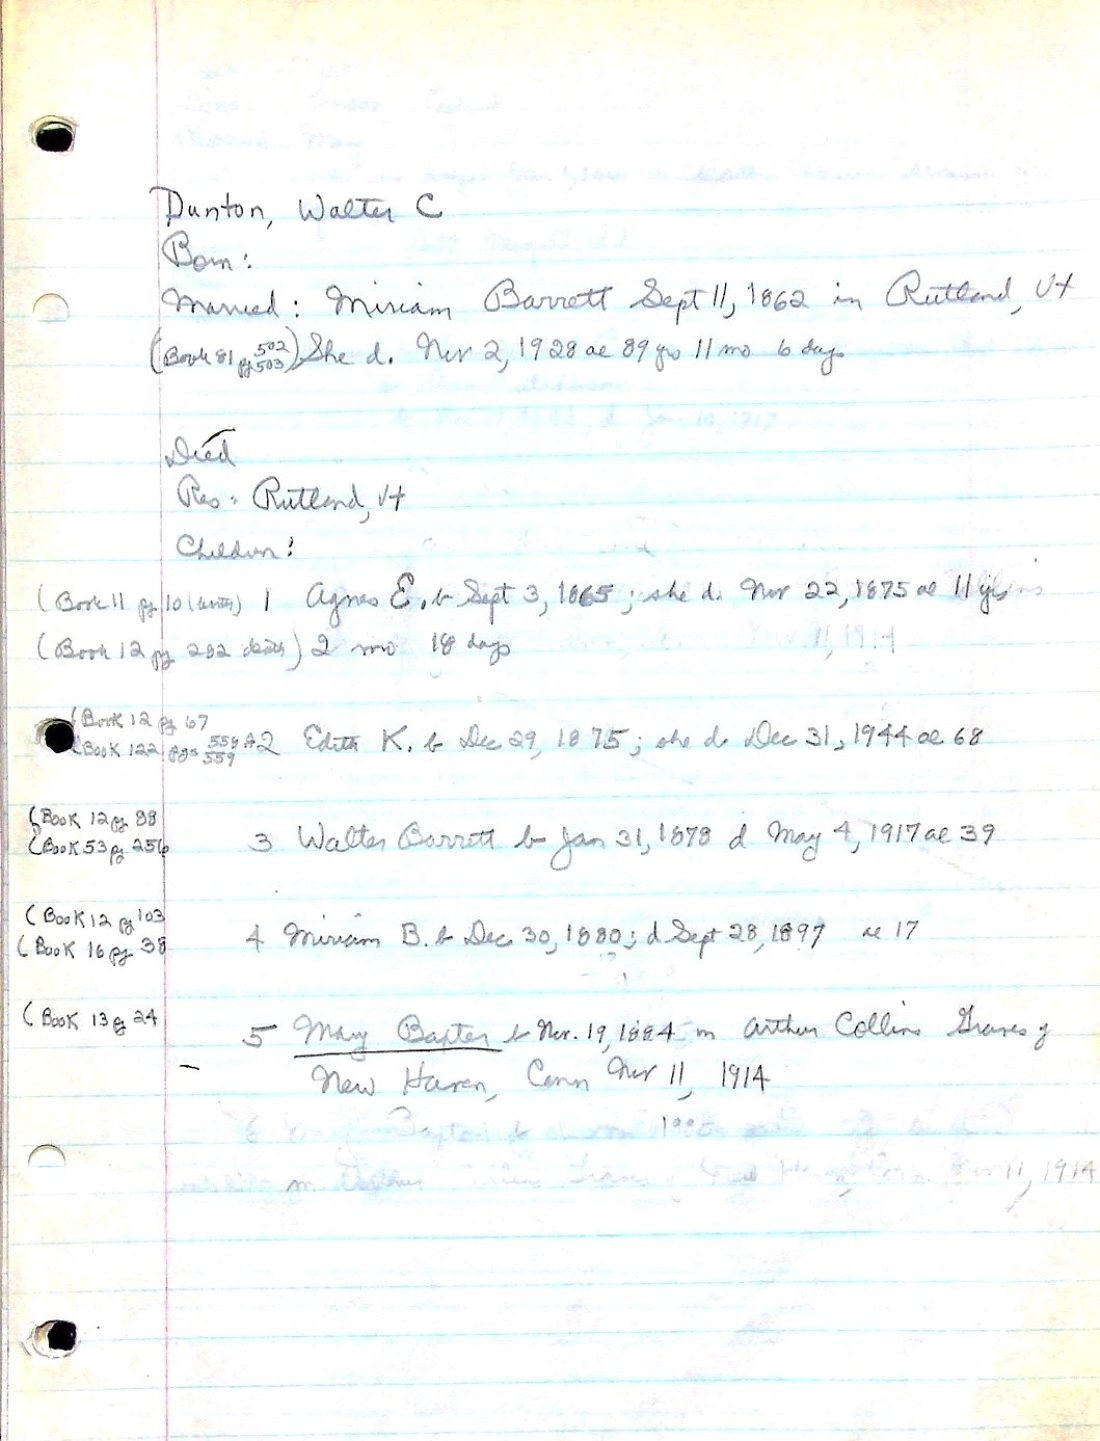 Dunton, Walter C
Born:
Married: Miriam Barrett Sept 11, 1862 in Rutland, Vt
(Book 81 pg 502 503) She d. Nov 2, 1928 ae 89 yrs 11 mo 6 days
Died
Res: Rutland, Vt
Children:
(Book 11 pg 10 (birth) 1 Agnes E. b Sept 3, 1865; she d. Nov 22, 1875 ae 11 yrs
(Book 12 pg 282 death) 2 mo 18 days
(Book 12 pg 67
(Book 122 pgs 558 A 559 2 Edith K. b Dec 29, 1875; she d Dec 31, 1944 ae 68
(Book 12 pg 88
(Book 53 pg 256 3 Walter Barrett b Jan 31, 1878 d May 4, 1917 ae 39
(Book 12 pg 103
(Book 16 pg 38 4 Miriam B. b Dec 30, 1880; d Sept 28, 1897 ae 17
(Book 13 pg 24
5 Mary Baxter b Nov. 19, 1884 m Arthur Collins Graves of
New Haven, Conn Nov 11, 1914